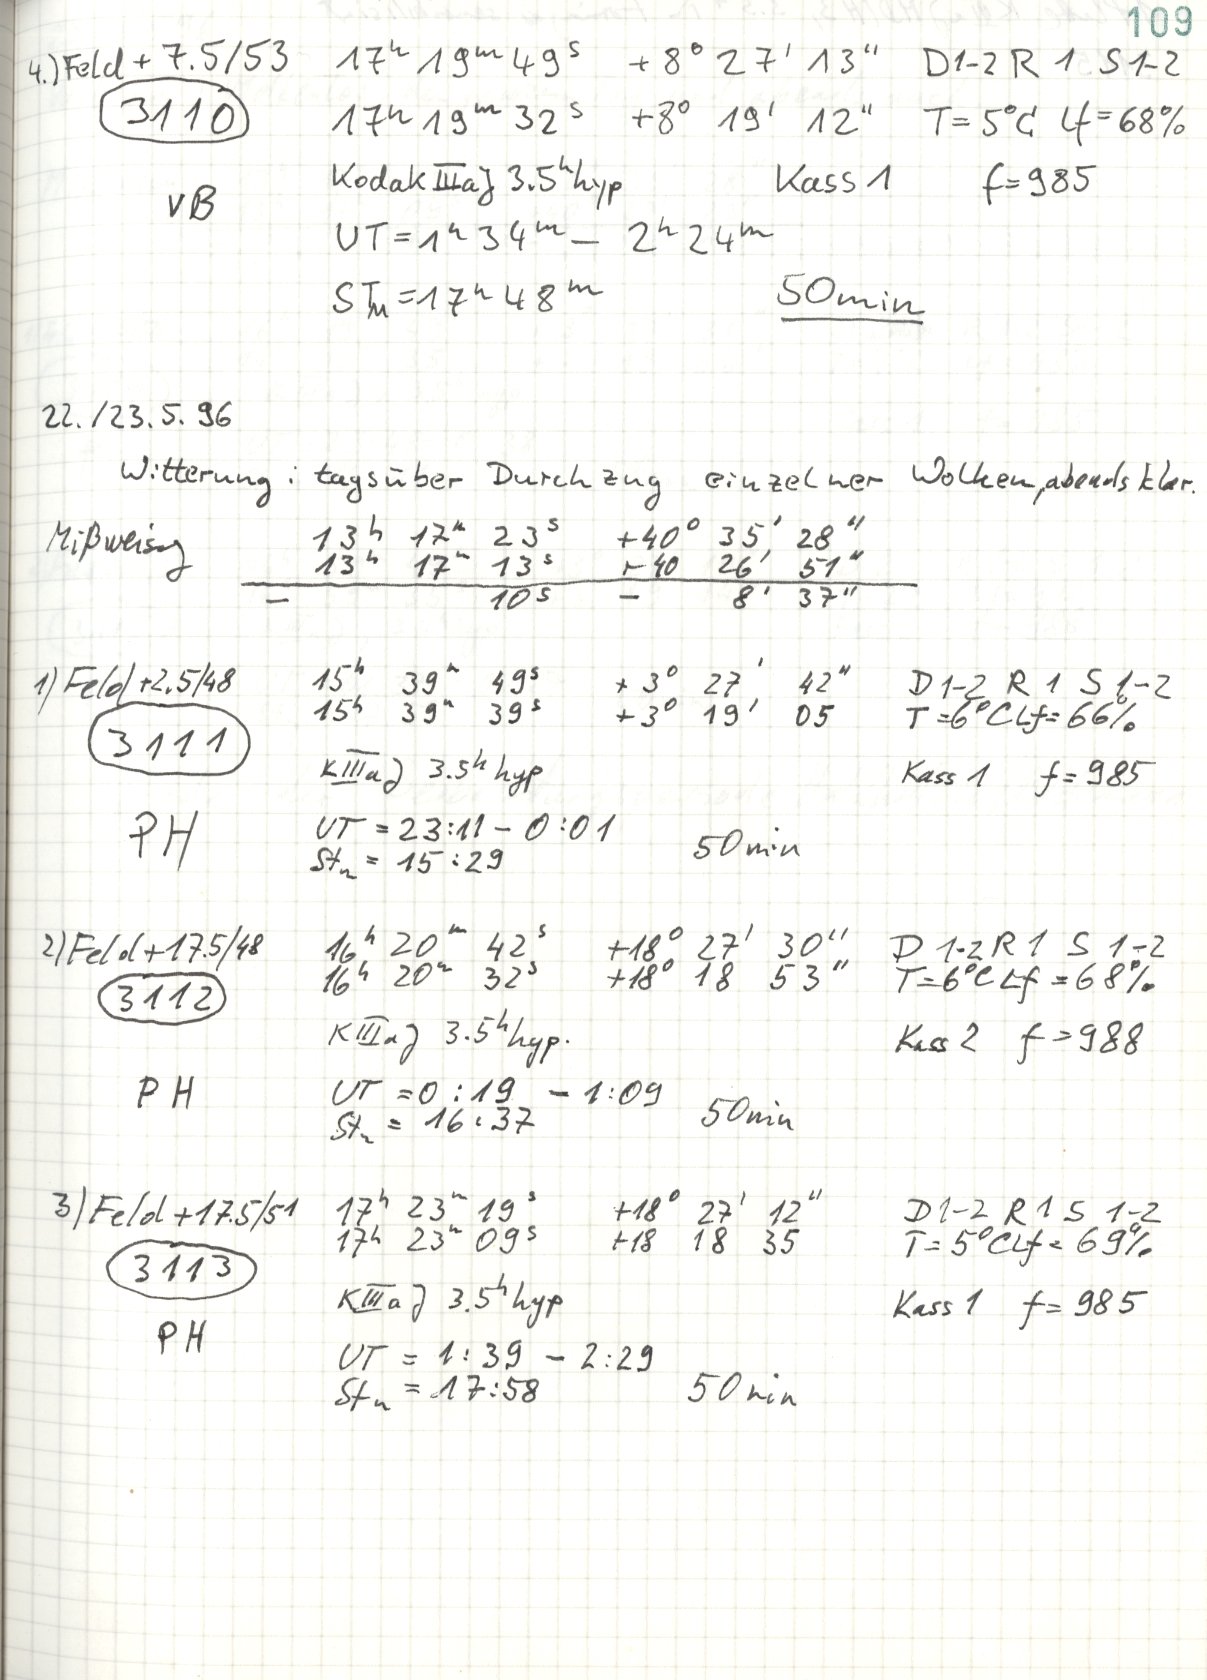 109
4.) Feld + 7.5/53 17h 19m 49s +8° 27' 13" D1-2 R 1 S1-2
3110 17h 19m 32s +8° 19' 12" T=5°C Lf=68%
Kodak IIIaJ 3.5h hyp Kass 1 f=985
vB
UT=1h 34m – 2h 24m
STm=17h 48m 50min
22./23.5.96
Witterung: tagsüber Durchzug einzelner Wolken, abends klar.
Mißweisg 13h 17m 23s +40° 35' 28"
13h 17m 13s +40 26' 51"
– 10s – 8' 37"
1) Feld +2.5/48 15h 39m 49s +3° 27' 42" D1-2 R 1 S 1-2
3111 15h 39m 39s +3° 19' 05 T=6°C Lf=66%
KIIIaJ 3.5h hyp Kass 1 f=985
PH UT = 23:11 – 0:01 50min
Stm = 15:29
2) Feld +17.5/48 16h 20m 42s +18° 27' 30" D 1-2 R 1 S 1-2
3112 16h 20m 32s +18° 18 53" T=6°C Lf=68%
KIIIaJ 3.5h hyp. Kass 2 f=988
PH UT = 0:19 – 1:09 50min
Stm = 16:37
3) Feld +17.5/51 17h 23m 19s +18° 27' 12" D1-2 R 1 S 1-2
3113 17h 23m 09s +18 18 35 T=5°C Lf=69%
KIIIaJ 3.5h hyp Kass 1 f=985
PH
UT = 1:39 – 2:29
Stm = 17:58 50min